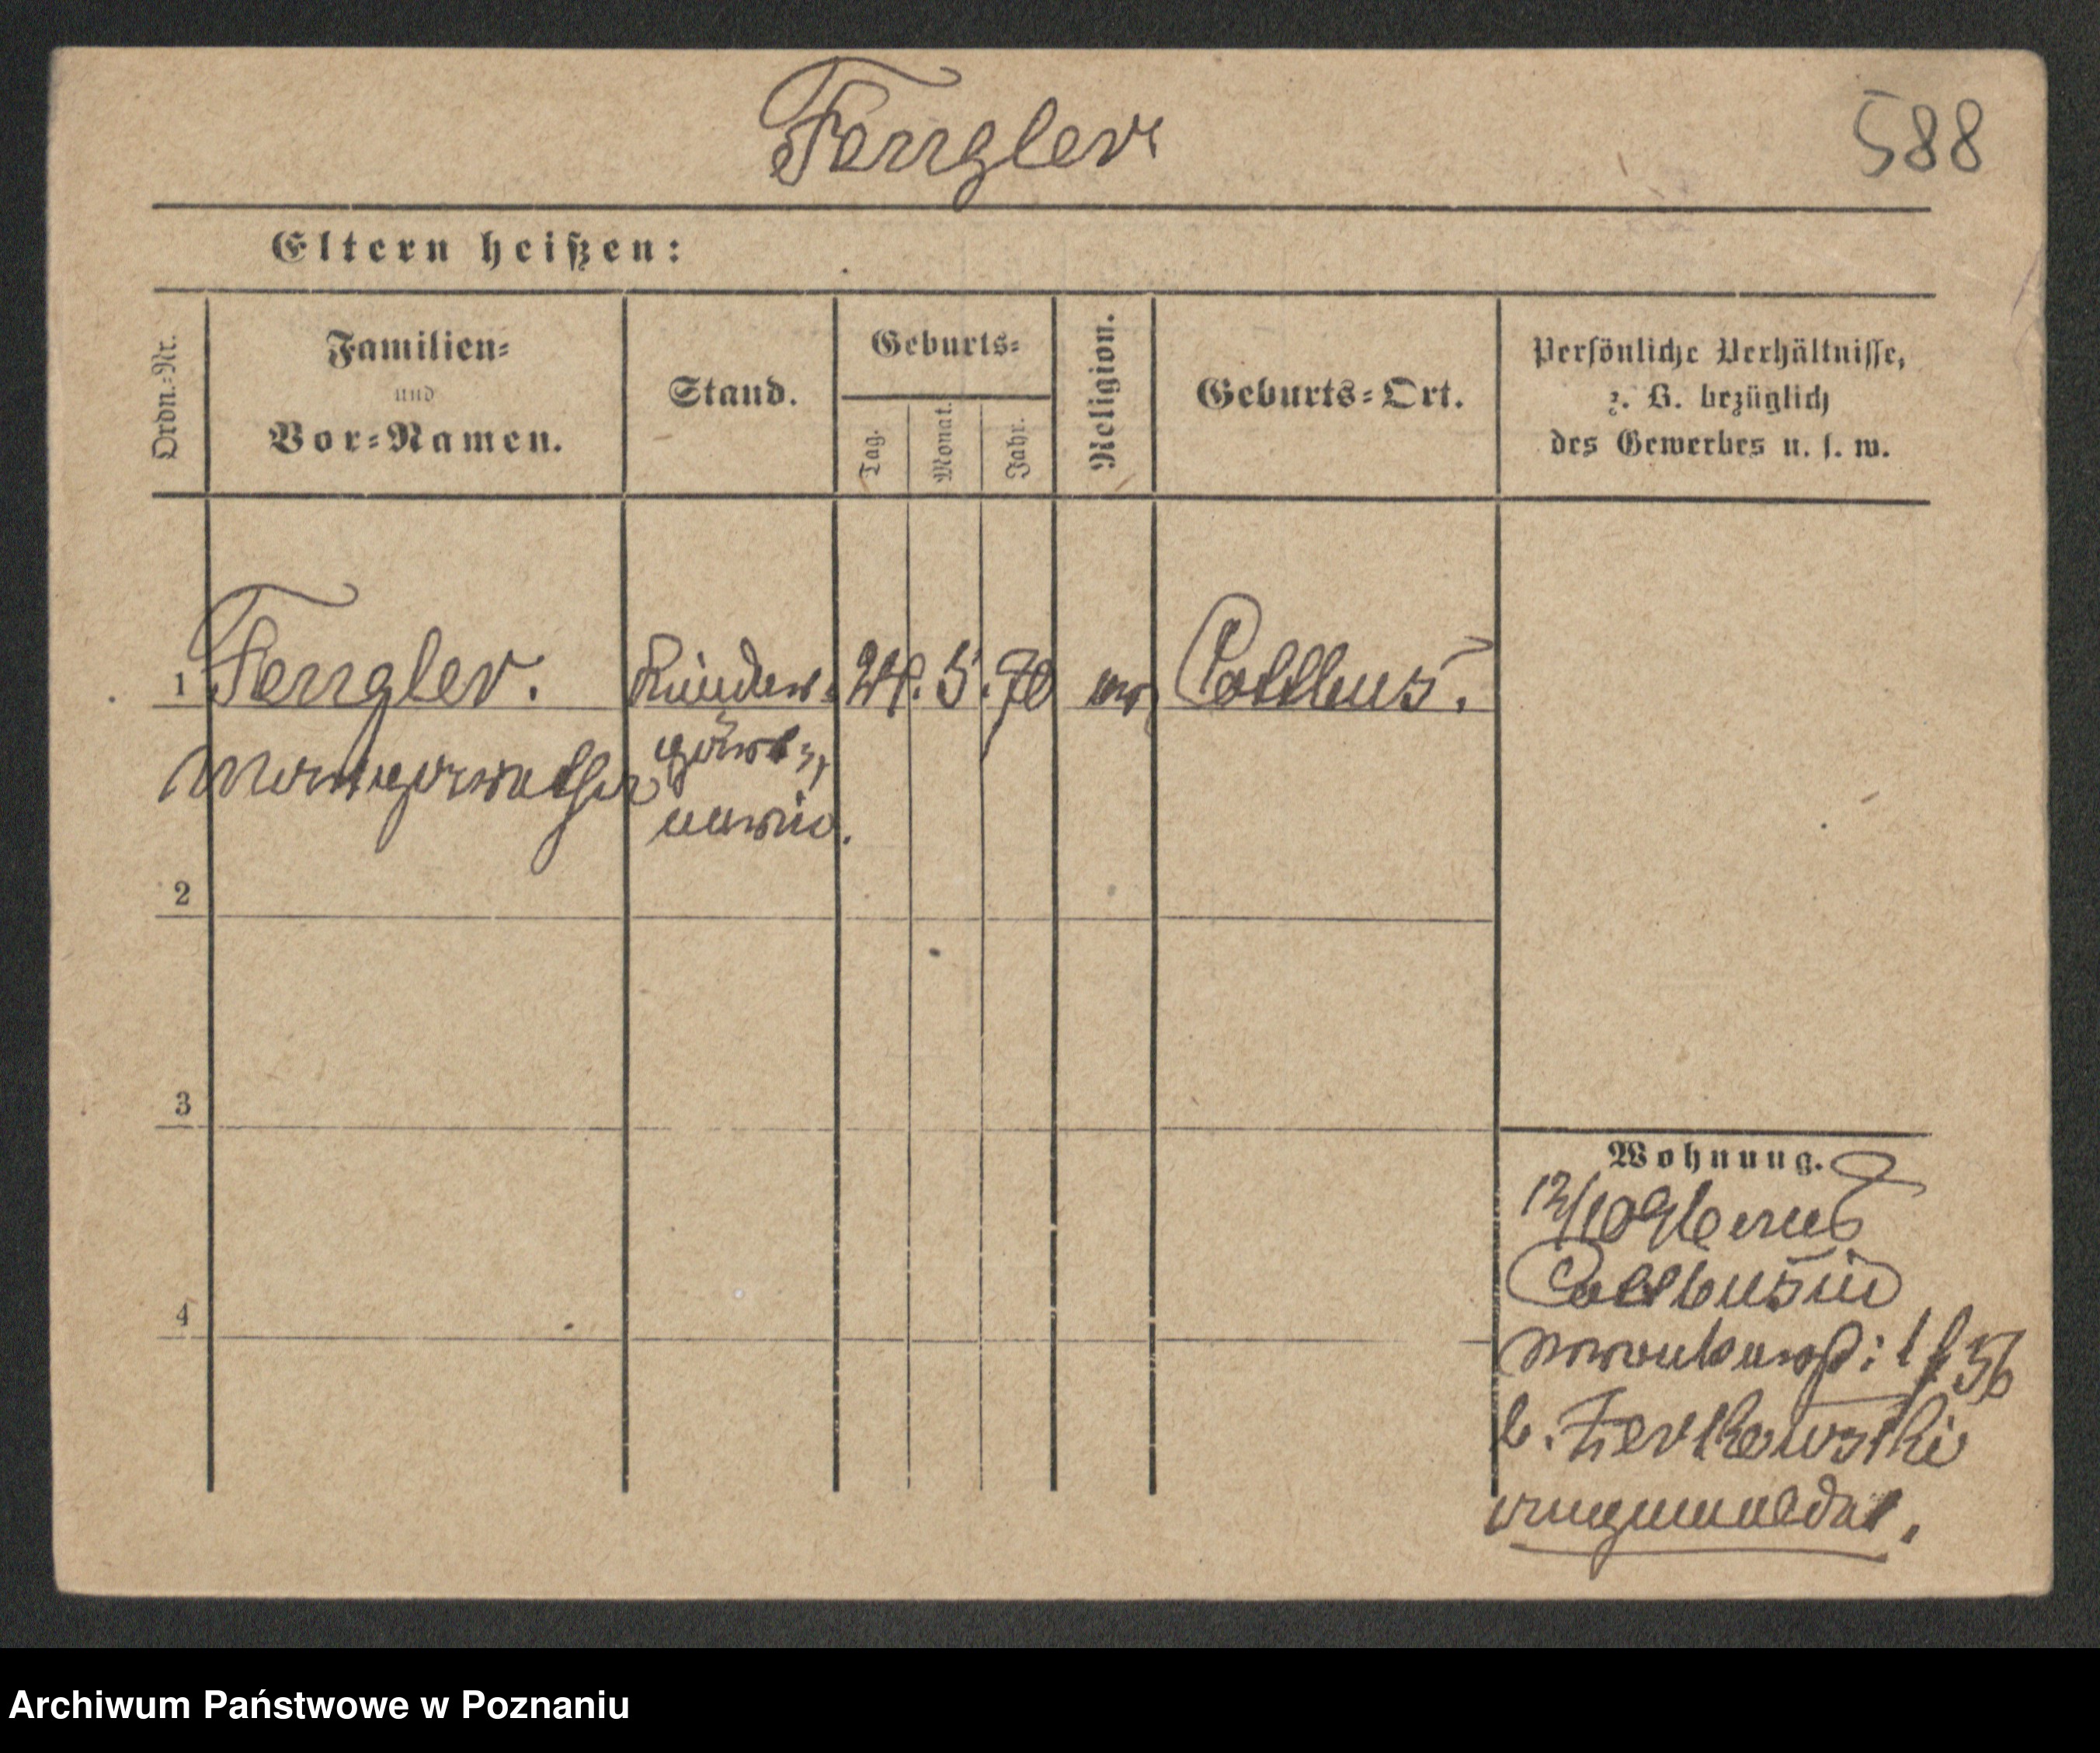 Fengler
588
Eltern heißen:
Ordn.=Nr.
Familien=
und
Vor=Namen.
Stand.
Geburts=
Tag.
Monat.
Jahr.
Religion.
Geburts=Ort.
Persönliche Verhältnisse,
z. B. bezüglich
des Gewerbes u. s. w.
1 Fengler. Kinder= 24. 5. 70 ev Cottbus.
Margarethe gärt=
2
3
4
Wohnung.
12/10 96 aus
Cottbus in
b. Ziolkowski
angemeldet.
Archiwum Państwowe w Poznaniu